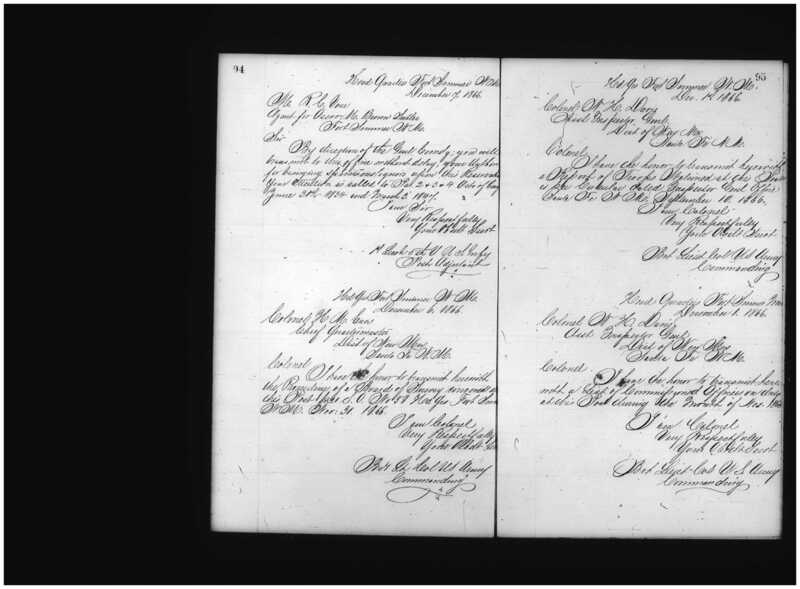 94
Head Quarters Fort Sumner N. M.
December 7, 1866.
Mr. R. C.
Agent for Oscar M. Brown Sutler
Fort Sumner N. M.
Sir
By direction of the Genl Comdg, you will
without delay, your
for bringing spirituous liquors upon this Reservation
Your attention is called to 2 & 3 & 4 Acts of Cong
June 30th 1834 and March 3 1847.
I am Sir
Very Respectfully
Your Obdt Servt
1st 5th U S Infy
Post Adjutant
Hd Qrs Fort Sumner N. M.
December 6, 1866.
Colonel H. M.
Chief Quartermaster
Dist of New Mex
Santa Fe N. M.
Colonel
I have the honor to transmit herewith
the Proceedings of a Board of Survey convened at
this Post per S. O. No Hd Qrs Fort
N. M. Nov. 1866.
I am Colonel
Very Respectfully
Your Obdt
Bvt Lt Col US Army
Commanding
95
Hd Qs Fort Sumner N. M.
Dec. 1866
Colonel N. H. Davis
Asst Inspector Genl.
Dist of New Mex
Santa Fe N. M.
Colonel
I have the honor to transmit herewith
a Report of Troops Stationed at this Post
as per Circular dated Inspector Genl Office
Santa Fe N. M. September 10, 1866.
I am Colonel
Very Respectfully
Your Obdt Servt
Bvt Lieut Col US Army
Commanding
Head Quarters Fort Sumner
December 1, 1866.
Colonel N. H. Davis
Asst Inspector Genl
Dist of New Mex
Santa Fe N. M.
Colonel
I have the honor to transmit
a List of Commissioned Officers on duty
at this Post during the Month of Nov.
I am Colonel
Very Respectfully
Your Obdt Servt
Bvt Lieut Col U S Army
Commanding